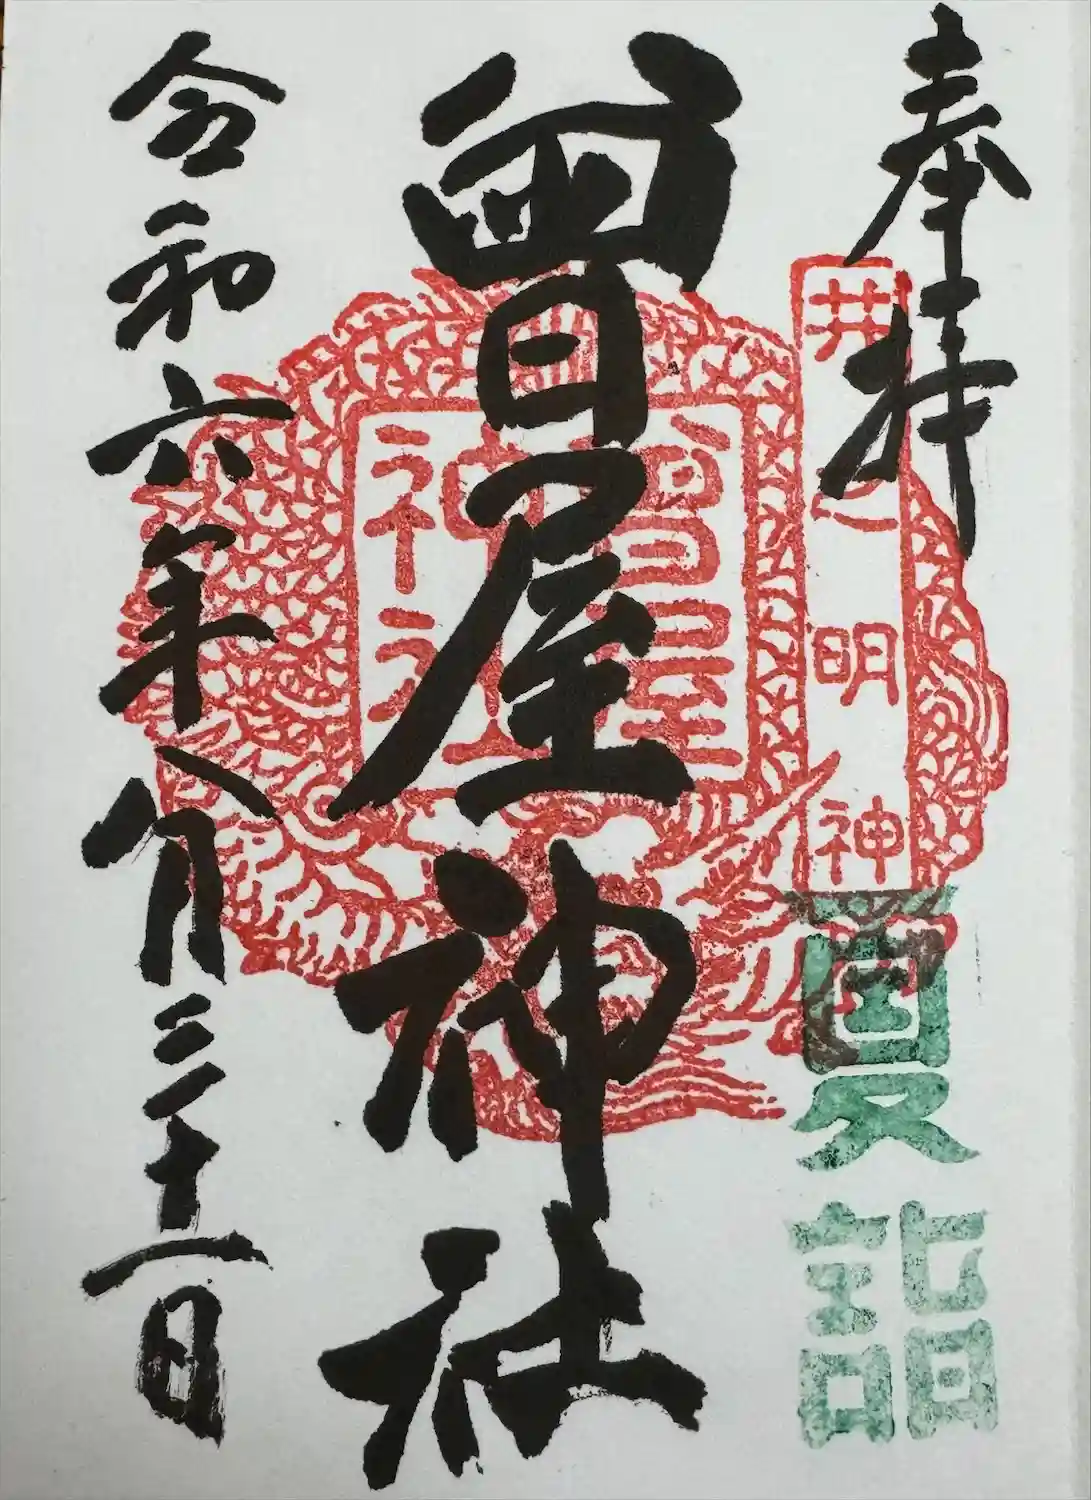 奉拝
井之明神
夏詣
曽屋神社
曽屋神社
令和六年八月三十一日